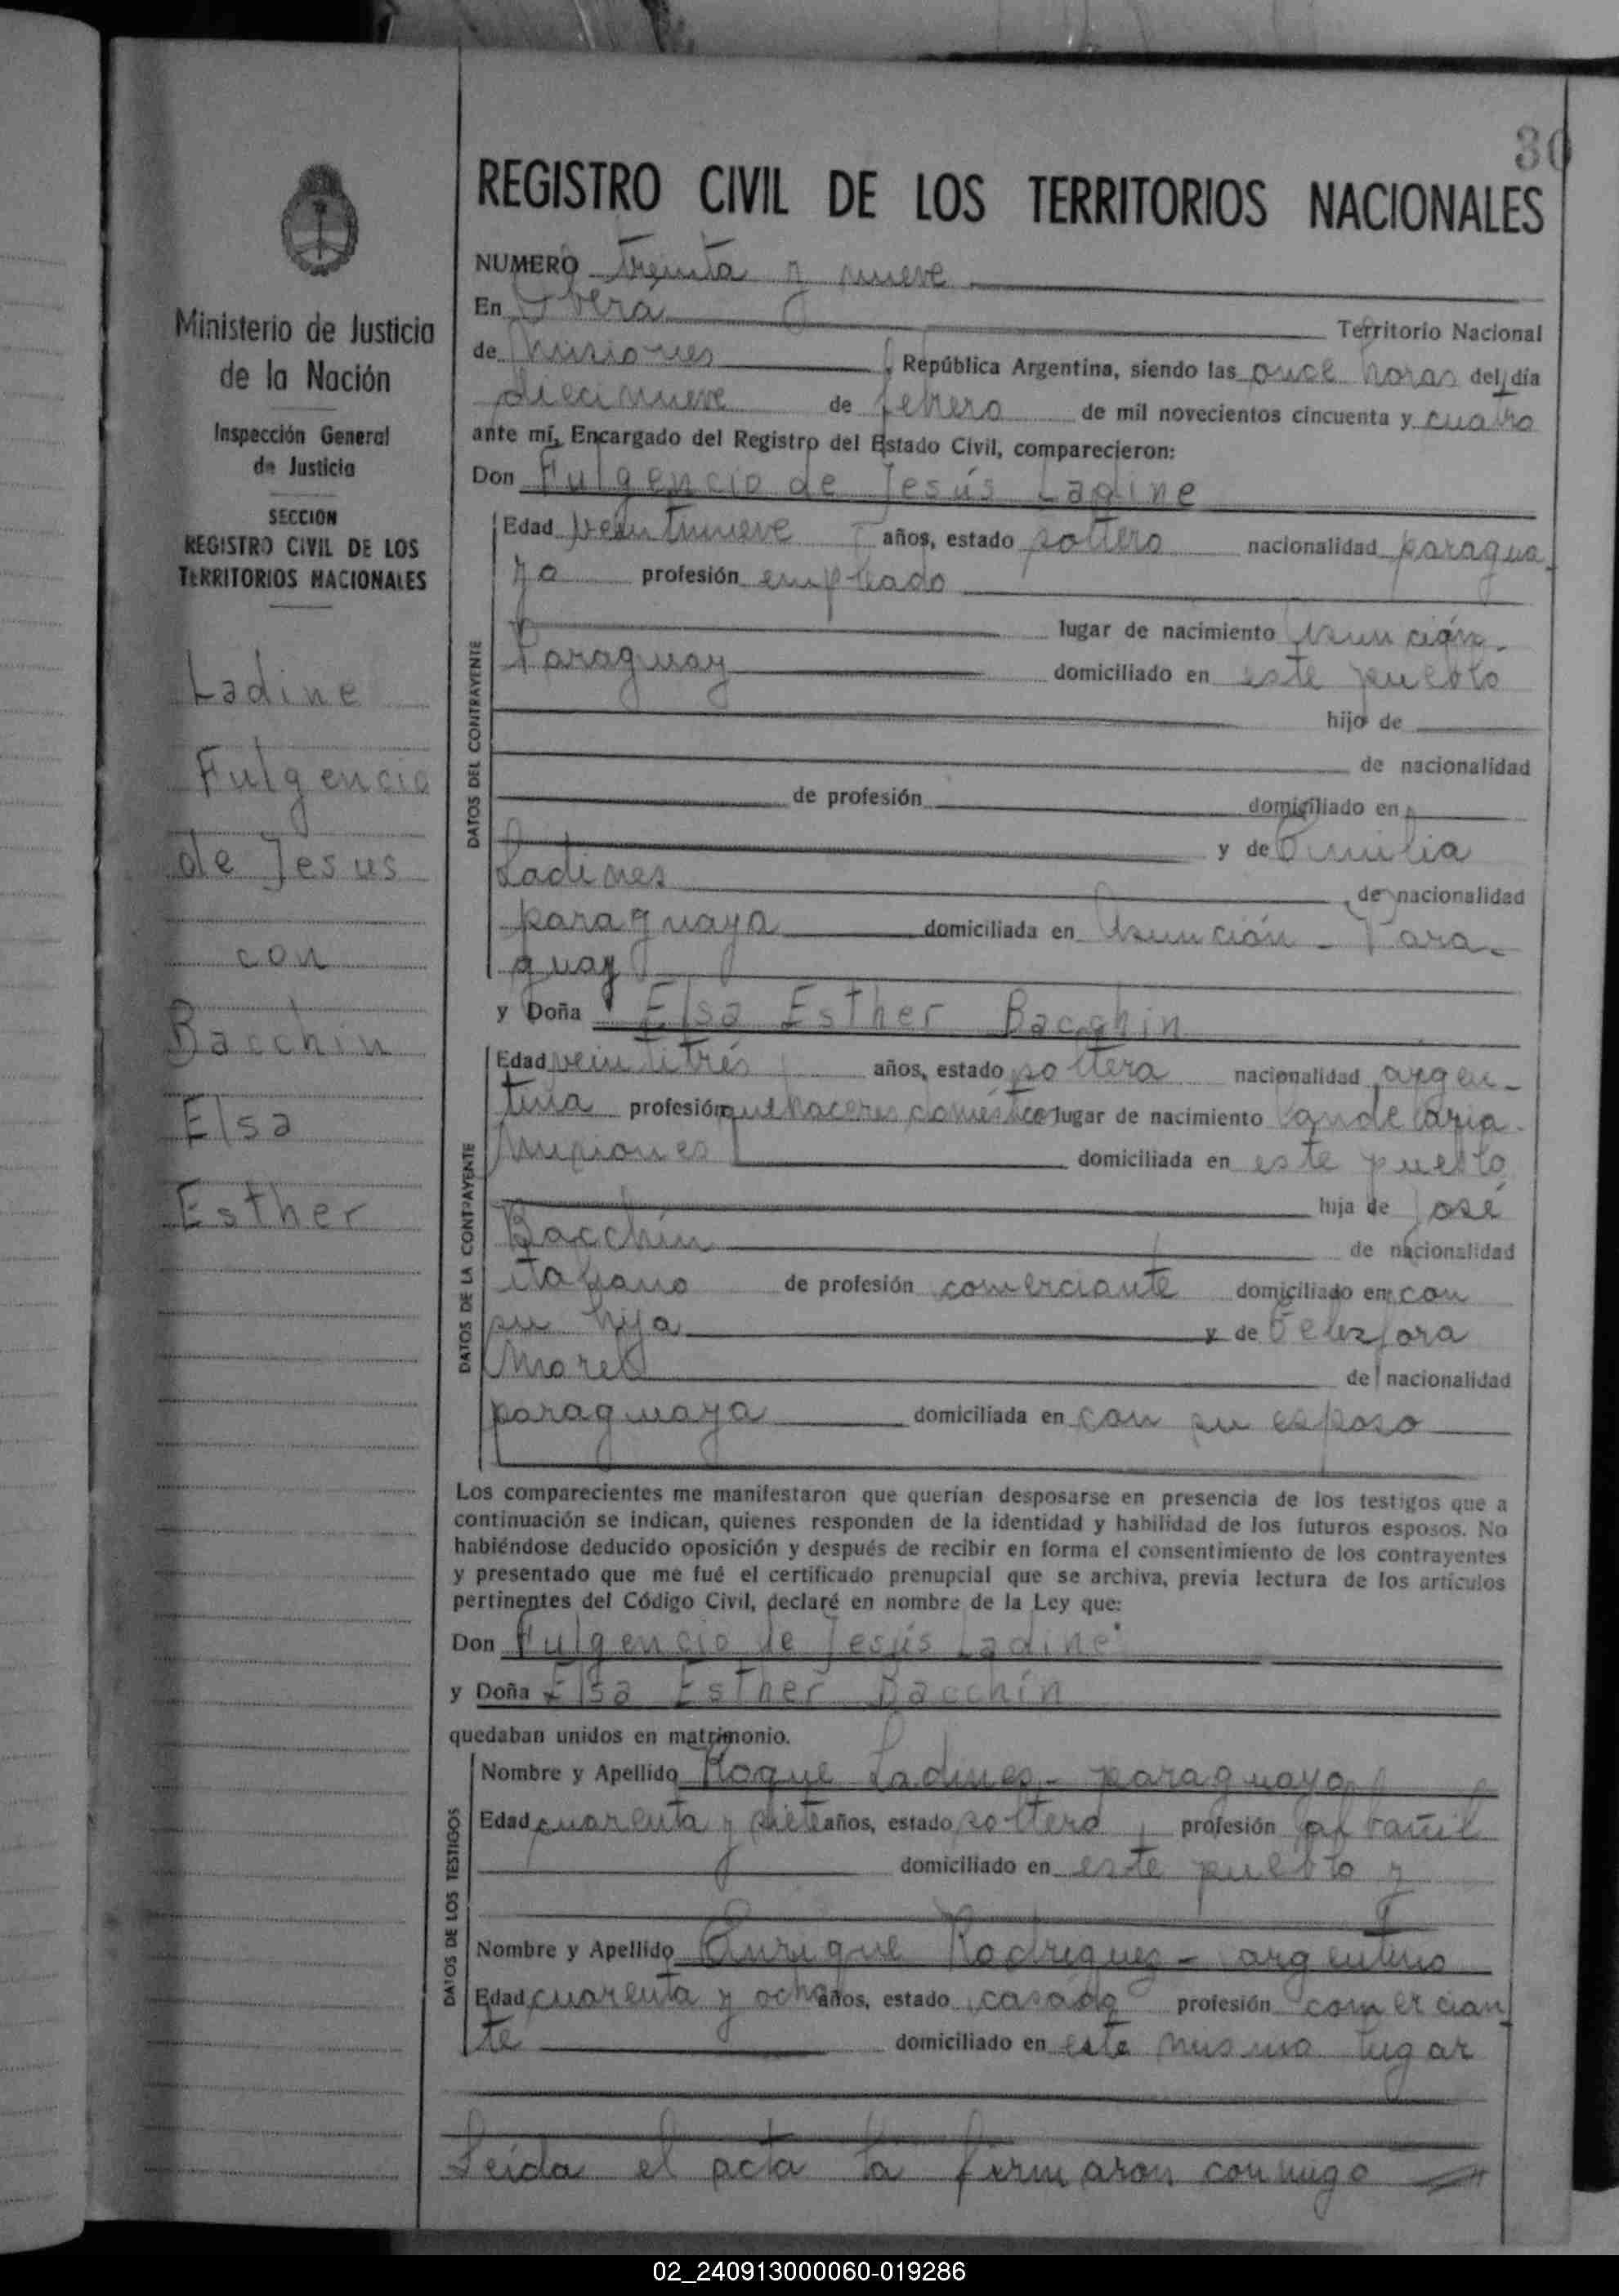 30
REGISTRO CIVIL DE LOS TERRITORIOS NACIONALES
Ministerio de Justicia
de la Nación
Inspección General
de Justicia
SECCION
REGISTRO CIVIL DE LOS
TERRITORIOS NACIONALES
Ladine
Fulgencio
de Jesus
con
Bacchin
Elsa
Esther
NUMERO treinta y nueve
En Oberá Territorio Nacional
de Misiones, República Argentina, siendo las once horas del día
diecinueve de febrero de mil novecientos cincuenta y cuatro
ante mí, Encargado del Registro del Estado Civil, comparecieron:
Don Fulgencio de Jesús Ladine
DATOS DEL CONTRAYENTE
Edad veintinueve años, estado soltero nacionalidad paragua
yo profesión empleado
lugar de nacimiento Asunción-
Paraguay domiciliado en este pueblo
hijo de
de nacionalidad
de profesión domiciliado en
y de Emilia
Ladines de nacionalidad
paraguaya domiciliada en Asunción - Para-
guay
y Doña Elsa Esther Bacchin
DATOS DE LA CONTRAYENTE
Edad veintitrés años, estado soltera nacionalidad argen-
tina profesión quehaceres domésticos lugar de nacimiento Candelaria-
Misiones domiciliada en este pueblo
hija de José
Bacchin de nacionalidad
italiano de profesión comerciante domiciliado en con
su hija y de Telesfora
Morel de nacionalidad
paraguaya domiciliada en con su esposo
Los comparecientes me manifestaron que querían desposarse en presencia de los testigos que a
continuación se indican, quienes responden de la identidad y habilidad de los futuros esposos. No
habiéndose deducido oposición y después de recibir en forma el consentimiento de los contrayentes
y presentado que me fué el certificado prenupcial que se archiva, previa lectura de los artículos
pertinentes del Código Civil, declaré en nombre de la Ley que:
Don Fulgencio de Jesús Ladine
y Doña Elsa Esther Bacchin
quedaban unidos en matrimonio.
DATOS DE LOS TESTIGOS
Nombre y Apellido Roque Ladines - paraguayo
Edad cuarenta y siete años, estado soltero profesión albañil
domiciliado en este pueblo y
Nombre y Apellido Enrique Rodriguez - argentino
Edad cuarenta y ocho años, estado casado profesión comercian
te domiciliado en este mismo lugar
Leída el acta la firmaron conmigo
02_240913000060-019286